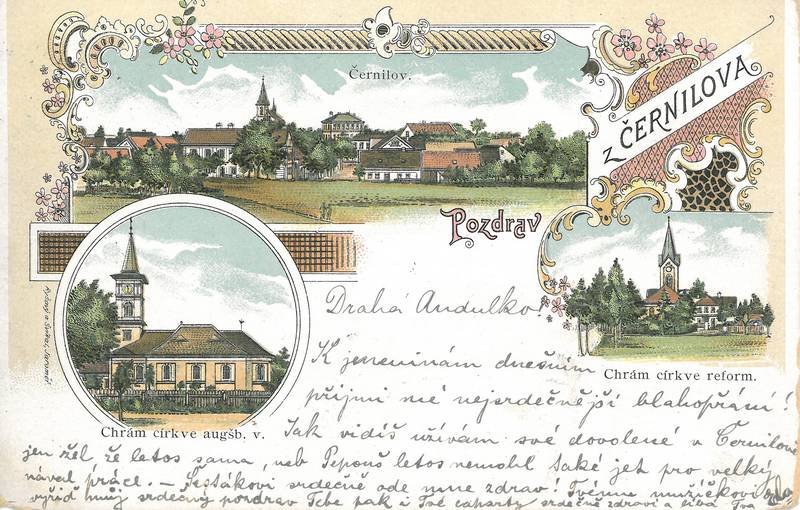 Černilov.
z ČERNILOVA
Pozdrav
Chrám církve reform.
Chrám církve augšb. v.
Drahá Andulko!
K jmeninám dnešním
přijmi mé nejsrdečnější blahopřání!
Jak vidíš užívám své dovolené v Černilově
jen žel že letos sama, neb Pepouš letos nemohl také jet pro velký
nával práce. – Šestákovi srdečně ode mne zdrav!
vyřiď můj srdečný pozdrav Tebe pak i Tvé srdečně zdraví a líbá Tva